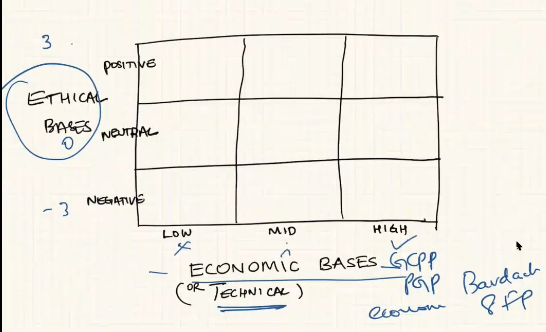 3
POSITIVE
ETHICAL
BASES
0
NEUTRAL
-3
NEGATIVE
LOW MID HIGH
ECONOMIC BASES GCPP
(OR TECHNICAL) PGP
Bardach
8 FP